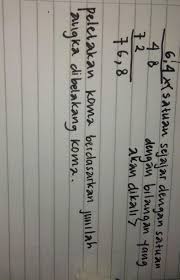 6,4 x (satuan sejajar dengan satuan
4 8 dengan bilangan yang
7 2 akan dikali)
7 6, 8
peletakan koma berdasarkan jumlah
angka dibelakang koma.